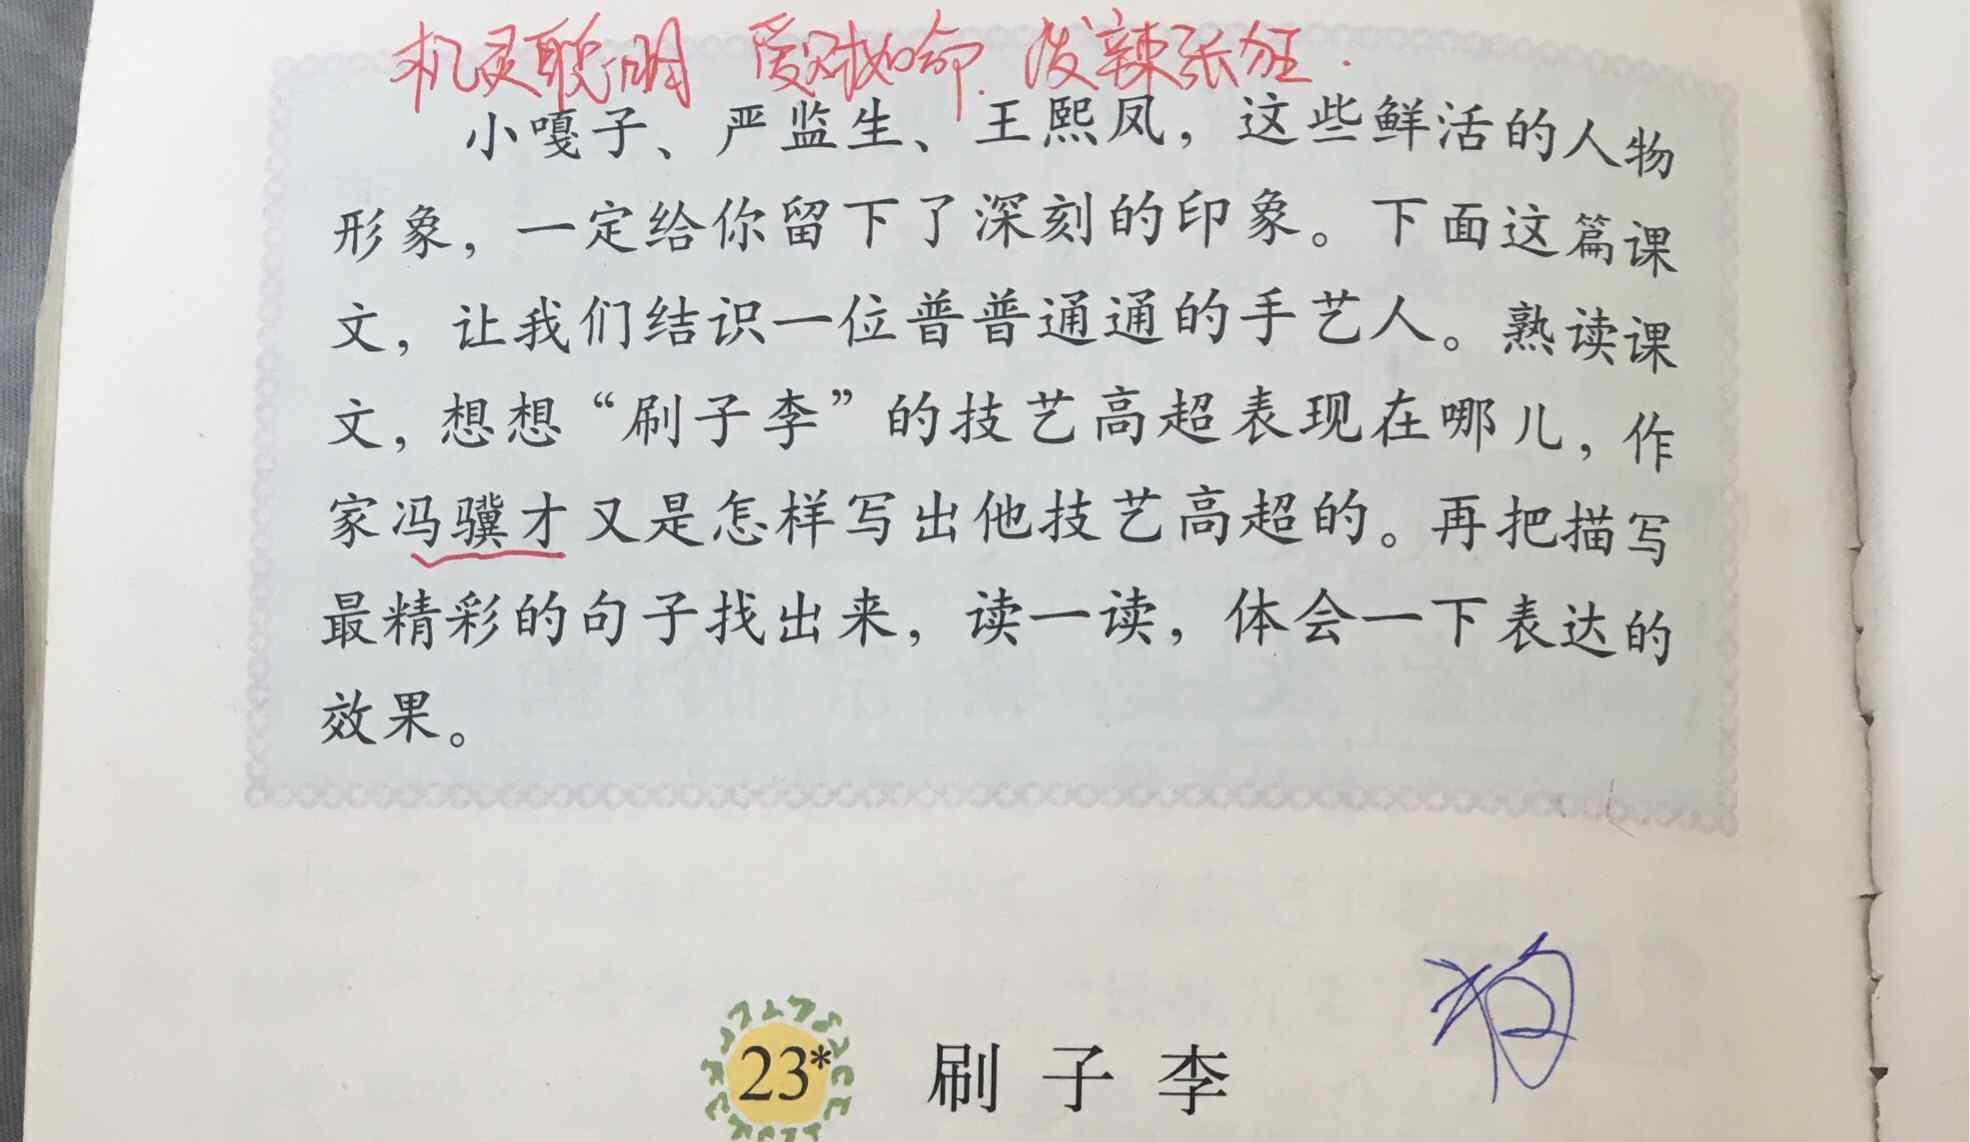 机灵聪明 爱财如命. 泼辣张狂.
小嘎子、严监生、王熙凤，这些鲜活的人物
形象，一定给你留下了深刻的印象。下面这篇课
文，让我们结识一位普普通通的手艺人。熟读课
文，想想“刷子李”的技艺高超表现在哪儿，作
家冯骥才又是怎样写出他技艺高超的。再把描写
最精彩的句子找出来，读一读，体会一下表达的
效果。
狗
23* 刷子李